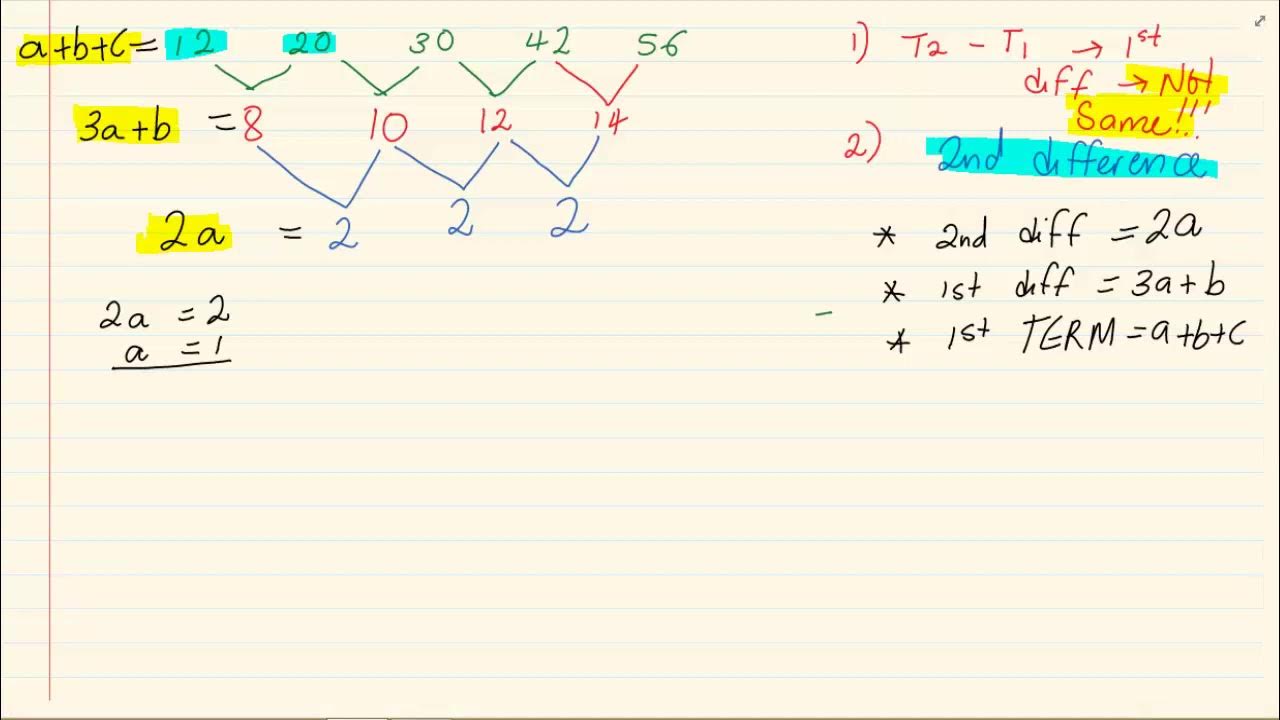 a+b+c = 12 20 30 42 56
3a+b = 8 10 12 14
2a = 2 2 2
2a = 2
a = 1
1) T2 - T1 → 1st
diff → Not
Same!!!
2) 2nd difference
* 2nd diff = 2a
* 1st diff = 3a+b
* 1st TERM = a+b+c